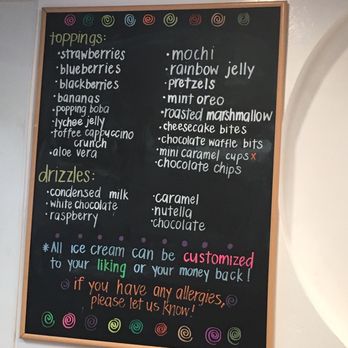 toppings:
• strawberries
• blueberries
• blackberries
• bananas
• popping boba
• lychee jelly
• toffee cappuccino
crunch
• aloe vera
• mochi
• rainbow jelly
• pretzels
• mint oreo
• roasted marshmallow
• cheesecake bites
• chocolate waffle bits
• mini caramel cups x
• chocolate chips
drizzles:
• condensed milk
• white chocolate
• raspberry
• caramel
• nutella
• chocolate
*All ice cream can be customized
to your liking or your money back!
if you have any allergies,
please let us know!